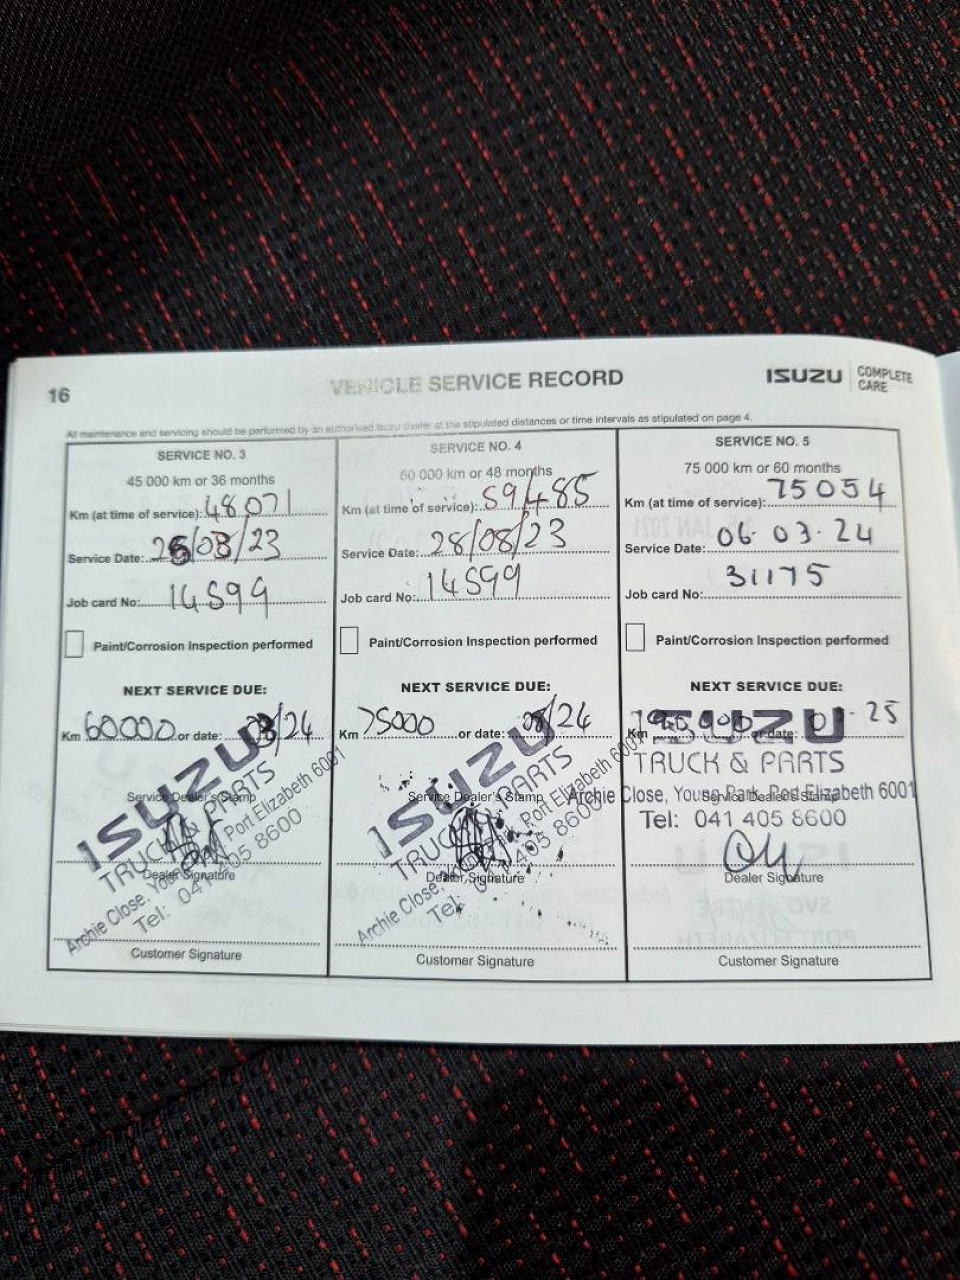 16
VEHICLE SERVICE RECORD
ISUZU COMPLETE CARE
All maintenance and servicing should be performed by an authorised Isuzu dealer at the stipulated distances or time intervals as stipulated on page 4.
SERVICE NO. 3
45 000 km or 36 months
Km (at time of service): 48071
Service Date: /03/23
Job card No: 14599
Paint/Corrosion Inspection performed
NEXT SERVICE DUE:
Km 60000 or date: /24
Service Dealer's Stamp
ISUZU
TRUCK & PARTS
Archie Close, Young Park, Port Elizabeth 6001
Tel: 041 405 8600
Dealer Signature
Customer Signature
SERVICE NO. 4
60 000 km or 48 months
Km (at time of service): 59485
Service Date: 28/08/23
Job card No: 14599
Paint/Corrosion Inspection performed
NEXT SERVICE DUE:
Km 75000 or date: 08/24
Service Dealer's Stamp
ISUZU
TRUCK & PARTS
Archie Close, Port Elizabeth 6001
Tel: 405 8600
Dealer Signature
Customer Signature
SERVICE NO. 5
75 000 km or 60 months
Km (at time of service): 75054
Service Date: 06.03.24
Job card No: 31175
Paint/Corrosion Inspection performed
NEXT SERVICE DUE:
Km or date: 25
ISUZU
TRUCK & PARTS
Service Dealer's Stamp
Archie Close, Young Park, Port Elizabeth 6001
Tel: 041 405 8600
Dealer Signature
Customer Signature